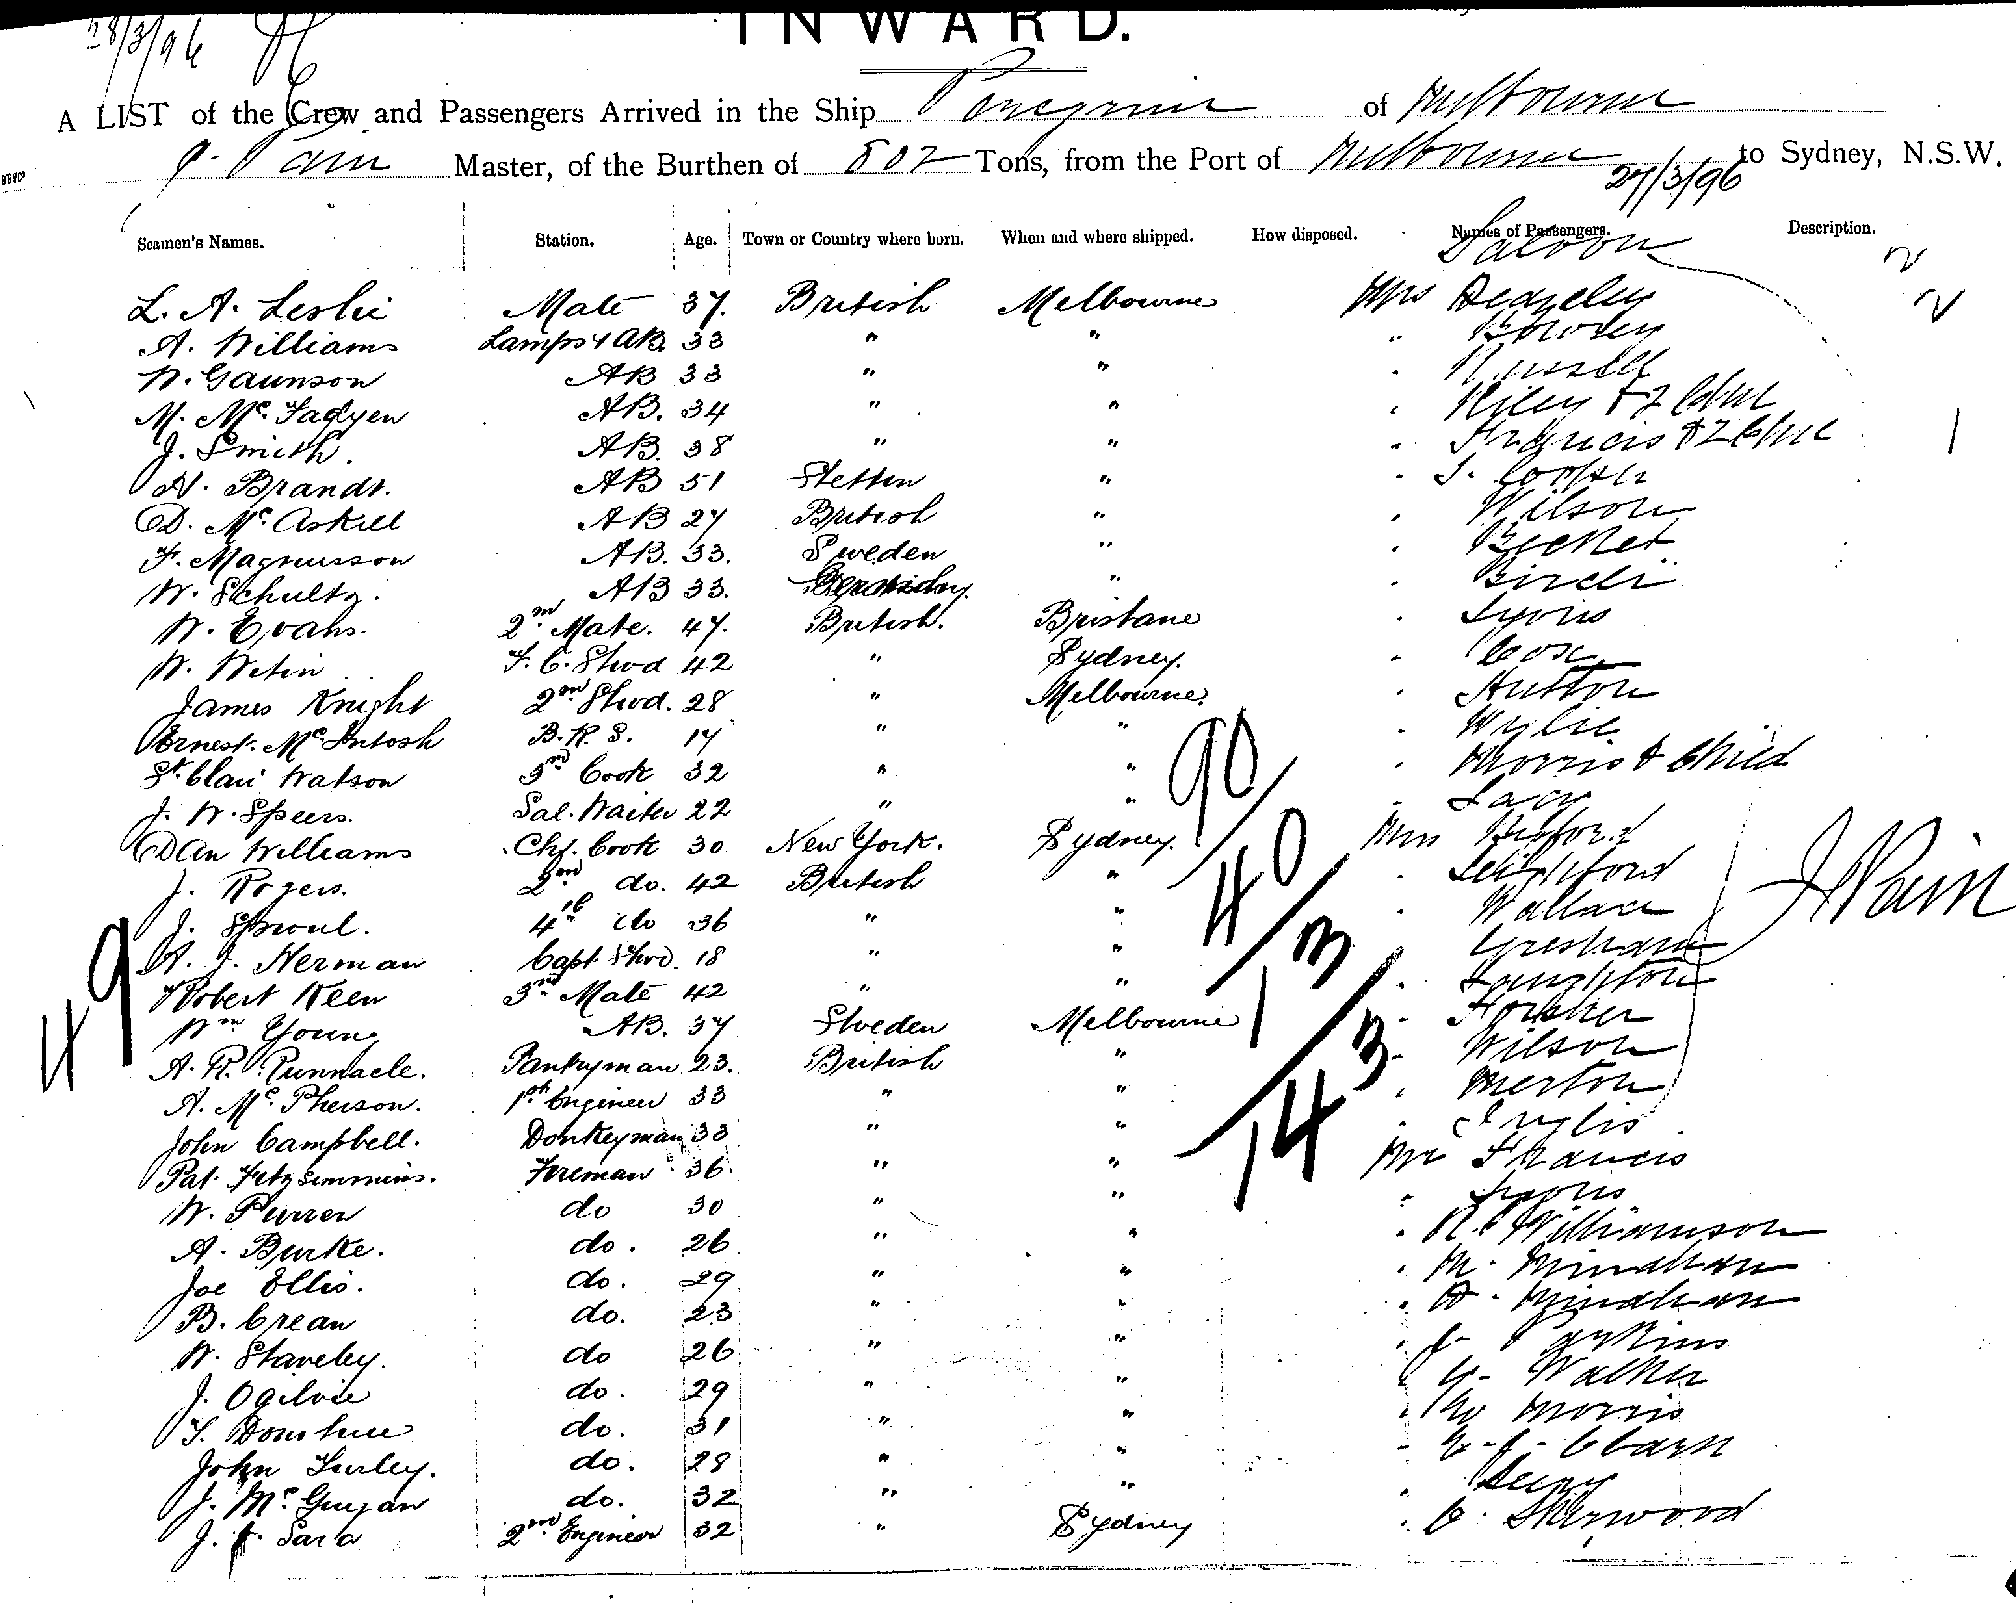 28/3/96
INWARD.
A LIST of the Crew and Passengers Arrived in the Ship Peregrine of Melbourne
J. Pain Master, of the Burthen of 802 Tons, from the Port of Melbourne 27/3/96 to Sydney, N.S.W.
Seamen's Names. Station. Age. Town or Country where born. When and where shipped. How disposed. Names of Passengers. Description.
Saloon
L. A. Leslie Mate 37. British Melbourne Mrs
A. Williams Lamps & AB. 33 " " "
W. Gaunson AB 33 " " " Russell
M. McFadyen AB. 34 " " " Riley & 2 Chn
J. Smith. AB. 38 " " " Francis & 2 Chn
A. Brandt. AB 51 Stettin " " S. Cooper
D. McAskill AB 27 British " " Wilson
F. Magnusson AB. 33. Sweden " " Becket
W. Schultz. AB 33. Germany " "
W. Evans. 2nd Mate. 47. British. Brisbane " Lyons
W. Wetin F. C. Stwd 42 " Sydney. " Cox
James Knight 2nd Stwd. 28 " Melbourne. " Hutton
Ernest. McIntosh B. R. S. 17 " " " Wylie
St. Clair Watson 3rd Cook 32 " " " Morris & Child
J. W. Speers. Sal. Waiter 22 " " " Lacy
Dan Williams Chf. Cook 30 New York. Sydney.
J. Rogers. 2nd do. 42 British " "
J. Sproul. 4th do 36 " " " Wallace
A. J. Herman Capt Stwd. 18 " " " Gresham
Robert Keen 3rd Mate 42 " " " Langhton
Wm Young AB. 37 Sweden Melbourne "
A. R. Punnacle. Pantryman 23. British " " Wilson
A. McPherson. 1st Engineer 33 " " " Merton
John Campbell. Donkeyman 33 " " " Inglis
Pat. Fitzsimmins. Fireman 36. " " Mr Francis
W. Purrer do 30 " " " Lyons
A. Burke. do. 26 " " " R. Williamson
Joe Ellis. do. 29 " " " M. Mindham
B. Crean do. 23 " " " A. Mindham
W. Staveley. do 26 " " "
J. Ogilvie do. 29 " " " G. Walker
T. Donohue do. 31 " " " W Morris
John Turley. do. 28 " " " E. J. Clark
J. McGuigan do. 32 " " "
J. J. Sara 2nd Engineer 32 " Sydney " C. Sherwood
49
90
40
13
143
J Pain